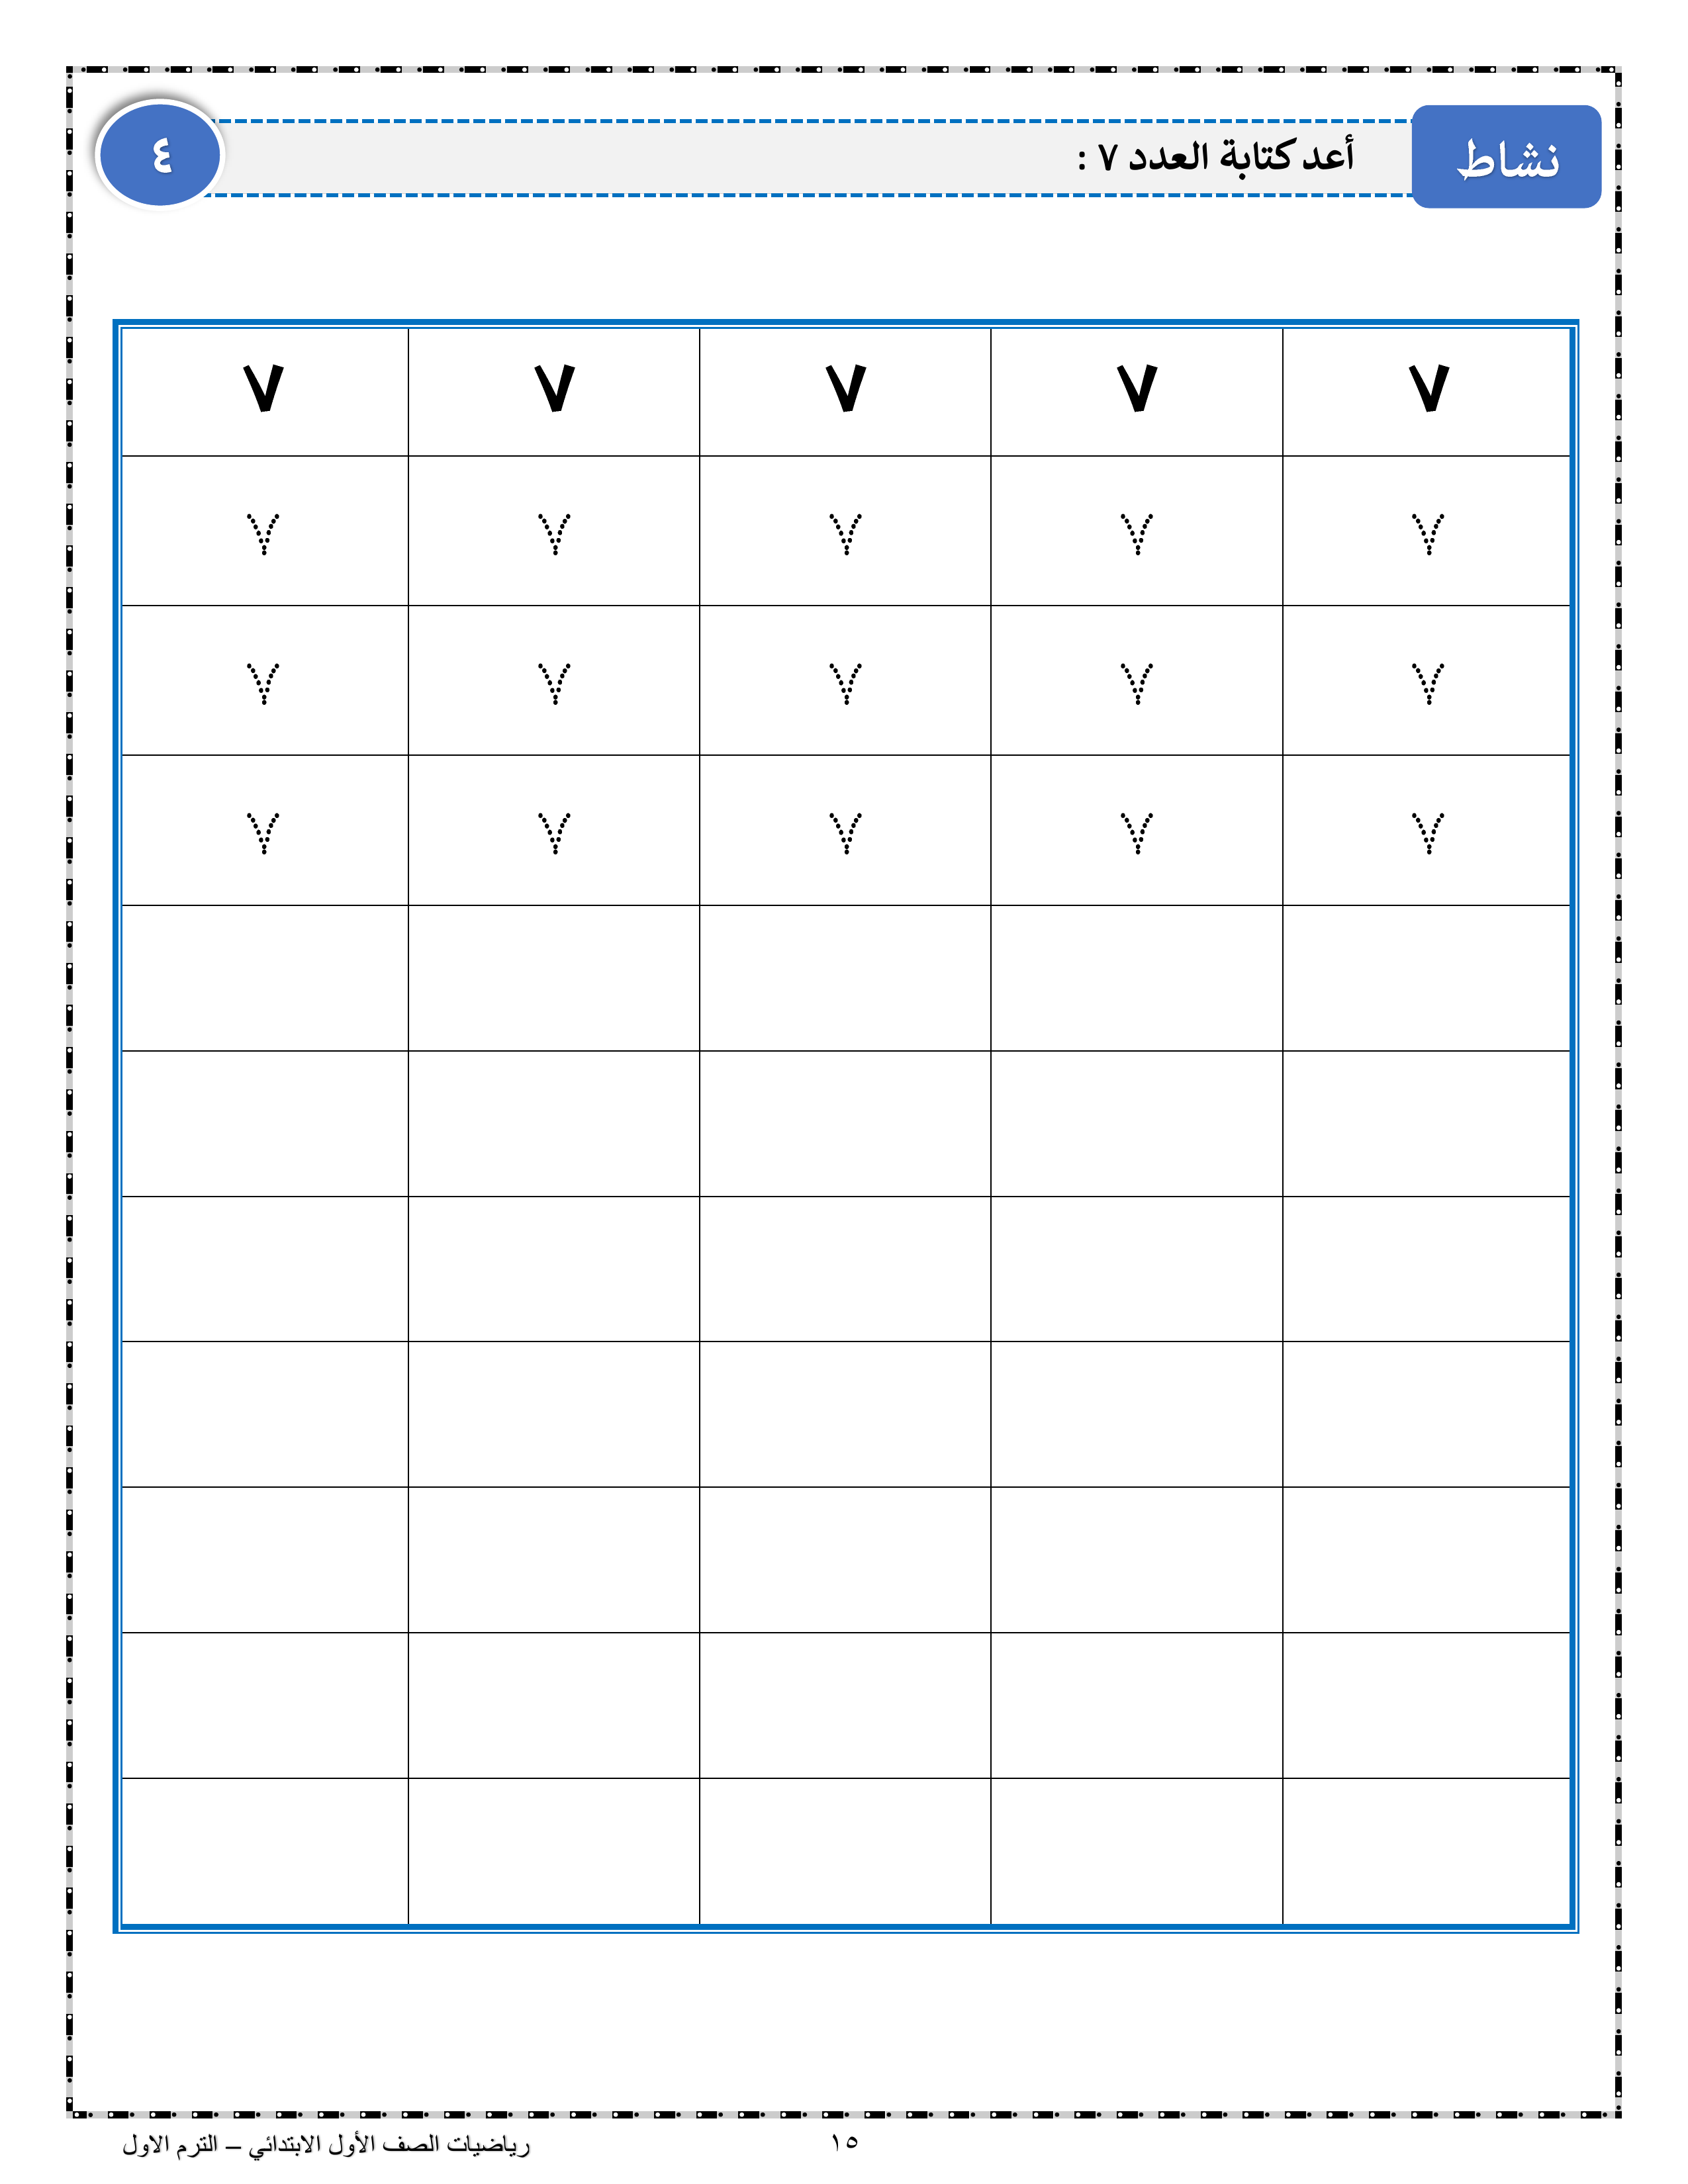 نشاط أعد كتابة العدد ٧ : ٤
٧ ٧ ٧ ٧ ٧
٧ ٧ ٧ ٧ ٧
٧ ٧ ٧ ٧ ٧
٧ ٧ ٧ ٧ ٧
١٥ رياضيات الصف الأول الابتدائي – الترم الاول